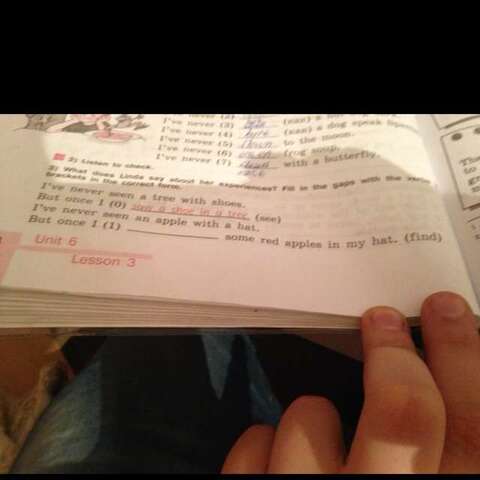 I've never (2)
I've never (3) (eas) a
I've never (4) (eas) a dog speak
I've never (5) flown to the moon.
I've never (6) eaten frog soup.
I've never (7) with a butterfly.
2) Listen to check.
3) What does Linda say about her experiences? Fill in the gaps with the verbs
brackets in the correct form.
I've never seen a tree with shoes.
But once I (0) saw a shoe in a tree (see)
I've never seen an apple with a hat.
But once I (1) ____________ some red apples in my hat. (find)
Unit 6
Lesson 3
The
to